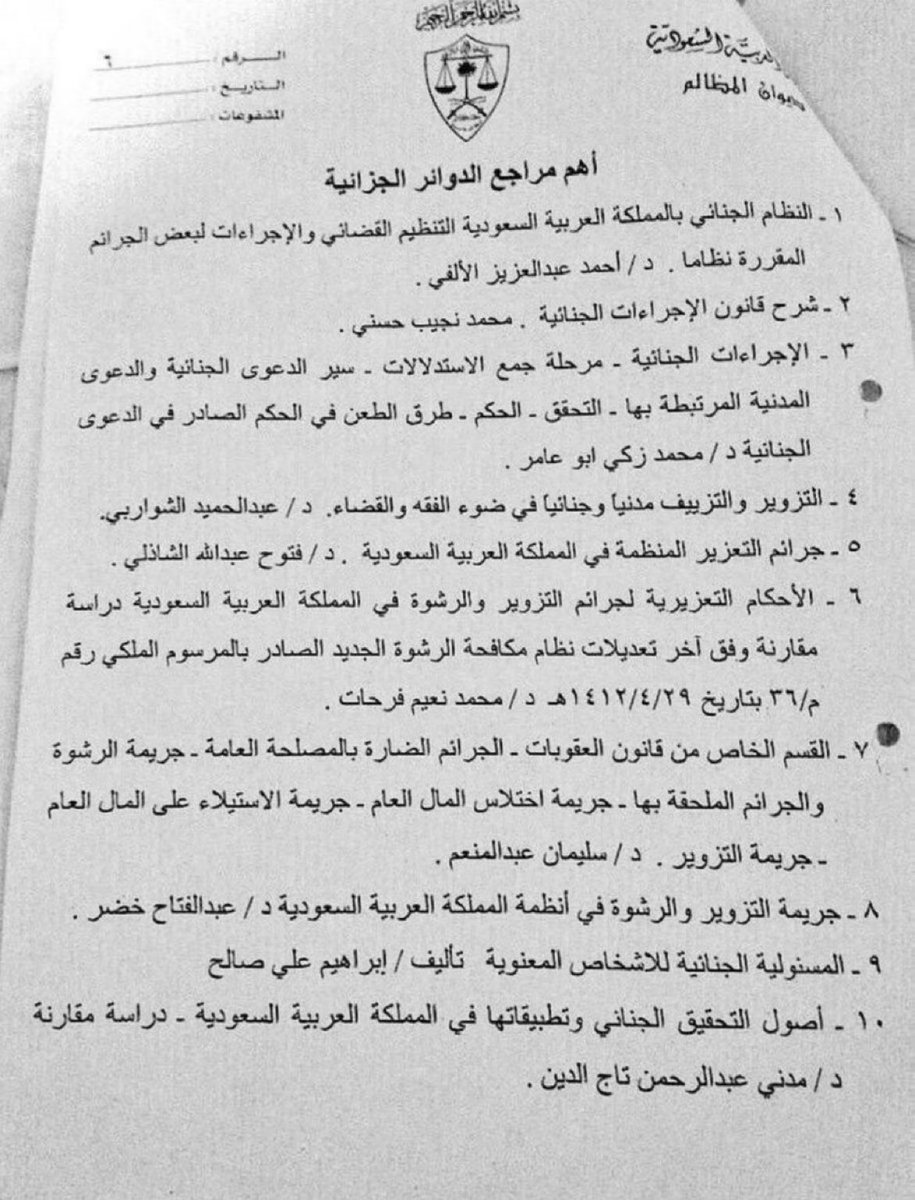 بسم الله الرحمن الرحيم
العربية السعودية
ديوان المظالم
الـرقم : ٦
التاريخ :
المشفوعات :
أهم مراجع الدوائر الجزائية
١ ـ النظام الجنائي بالمملكة العربية السعودية التنظيم القضائي والإجراءات لبعض الجرائم
المقررة نظاما . د / أحمد عبدالعزيز الألفي .
٢ ـ شرح قانون الإجراءات الجنائية . محمد نجيب حسني .
٣ ـ الإجراءات الجنائية ـ مرحلة جمع الاستدلالات ـ سير الدعوى الجنائية والدعوى
المدنية المرتبطة بها ـ التحقق ـ الحكم ـ طرق الطعن في الحكم الصادر في الدعوى
الجنائية د / محمد زكي ابو عامر .
٤ ـ التزوير والتزييف مدنياً وجنائياً في ضوء الفقه والقضاء. د / عبدالحميد الشواربي.
٥ ـ جرائم التعزير المنظمة في المملكة العربية السعودية . د / فتوح عبدالله الشاذلي .
٦ ـ الأحكام التعزيرية لجرائم التزوير والرشوة في المملكة العربية السعودية دراسة
مقارنة وفق آخر تعديلات نظام مكافحة الرشوة الجديد الصادر بالمرسوم الملكي رقم
م/٣٦ بتاريخ ١٤١٢/٤/٢٩هـ د / محمد نعيم فرحات .
٧ ـ القسم الخاص من قانون العقوبات ـ الجرائم الضارة بالمصلحة العامة ـ جريمة الرشوة
والجرائم الملحقة بها ـ جريمة اختلاس المال العام ـ جريمة الاستيلاء على المال العام
ـ جريمة التزوير . د / سليمان عبدالمنعم .
٨ ـ جريمة التزوير والرشوة في أنظمة المملكة العربية السعودية د / عبدالفتاح خضر .
٩ ـ المسئولية الجنائية للاشخاص المعنوية تأليف / إبراهيم علي صالح
١٠ ـ أصول التحقيق الجنائي وتطبيقاتها في المملكة العربية السعودية ـ دراسة مقارنة
د / مدني عبدالرحمن تاج الدين .